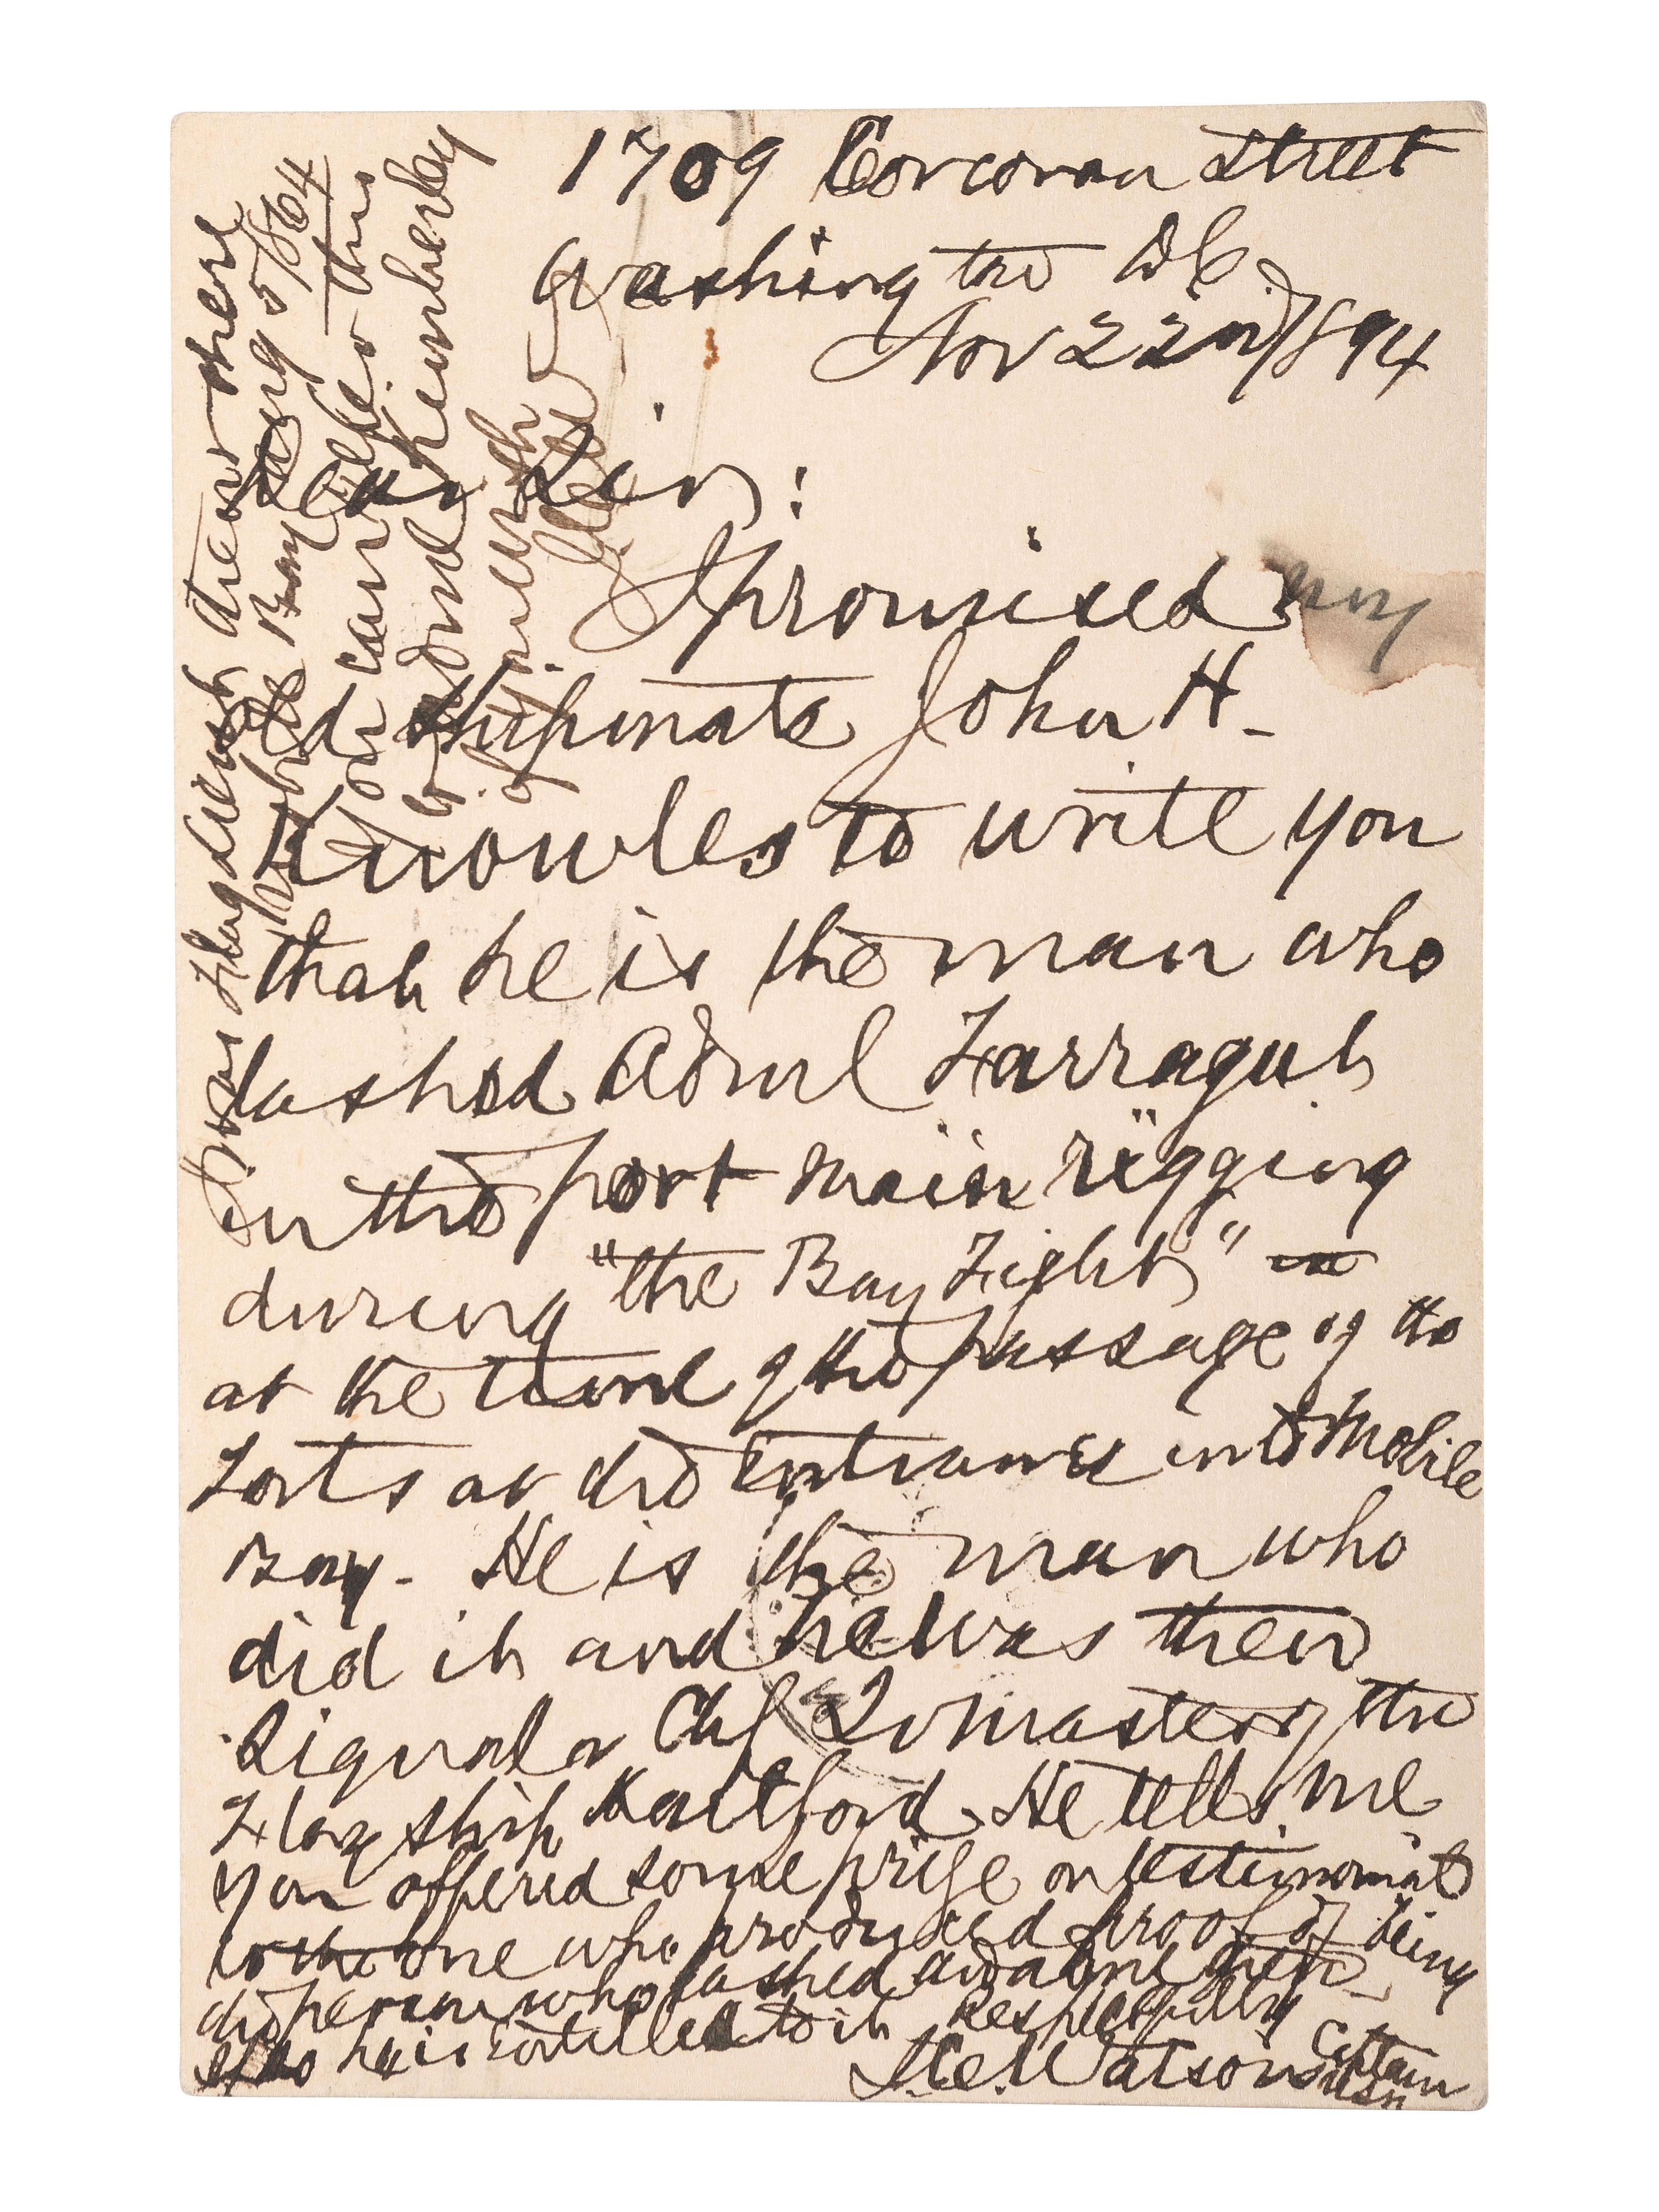 1709 Corcoran Street
Washington D.C.
Nov 22nd/894
Dear Sir:
I promised my
old shipmate John H.
Knowles to write you
that he is the man who
lashed Adml Farragut
in the port main rigging
during "the Bay Fight"
at the time of the passage of the
Forts at the entrance into Mobile
Bay. He is the man who
did it and he was then
Signal or Chf Qr master of the
Flag ship Hartford. He tells me
you offered some prize or testimonial
to the one who produced proof of being
the person who lashed the Adml
if so he is entitled to it Respectfully
J.C. Watson Captain
USN
I was Flag Lieut there
Mobile Bay Aug 5/864
You can this
and
of